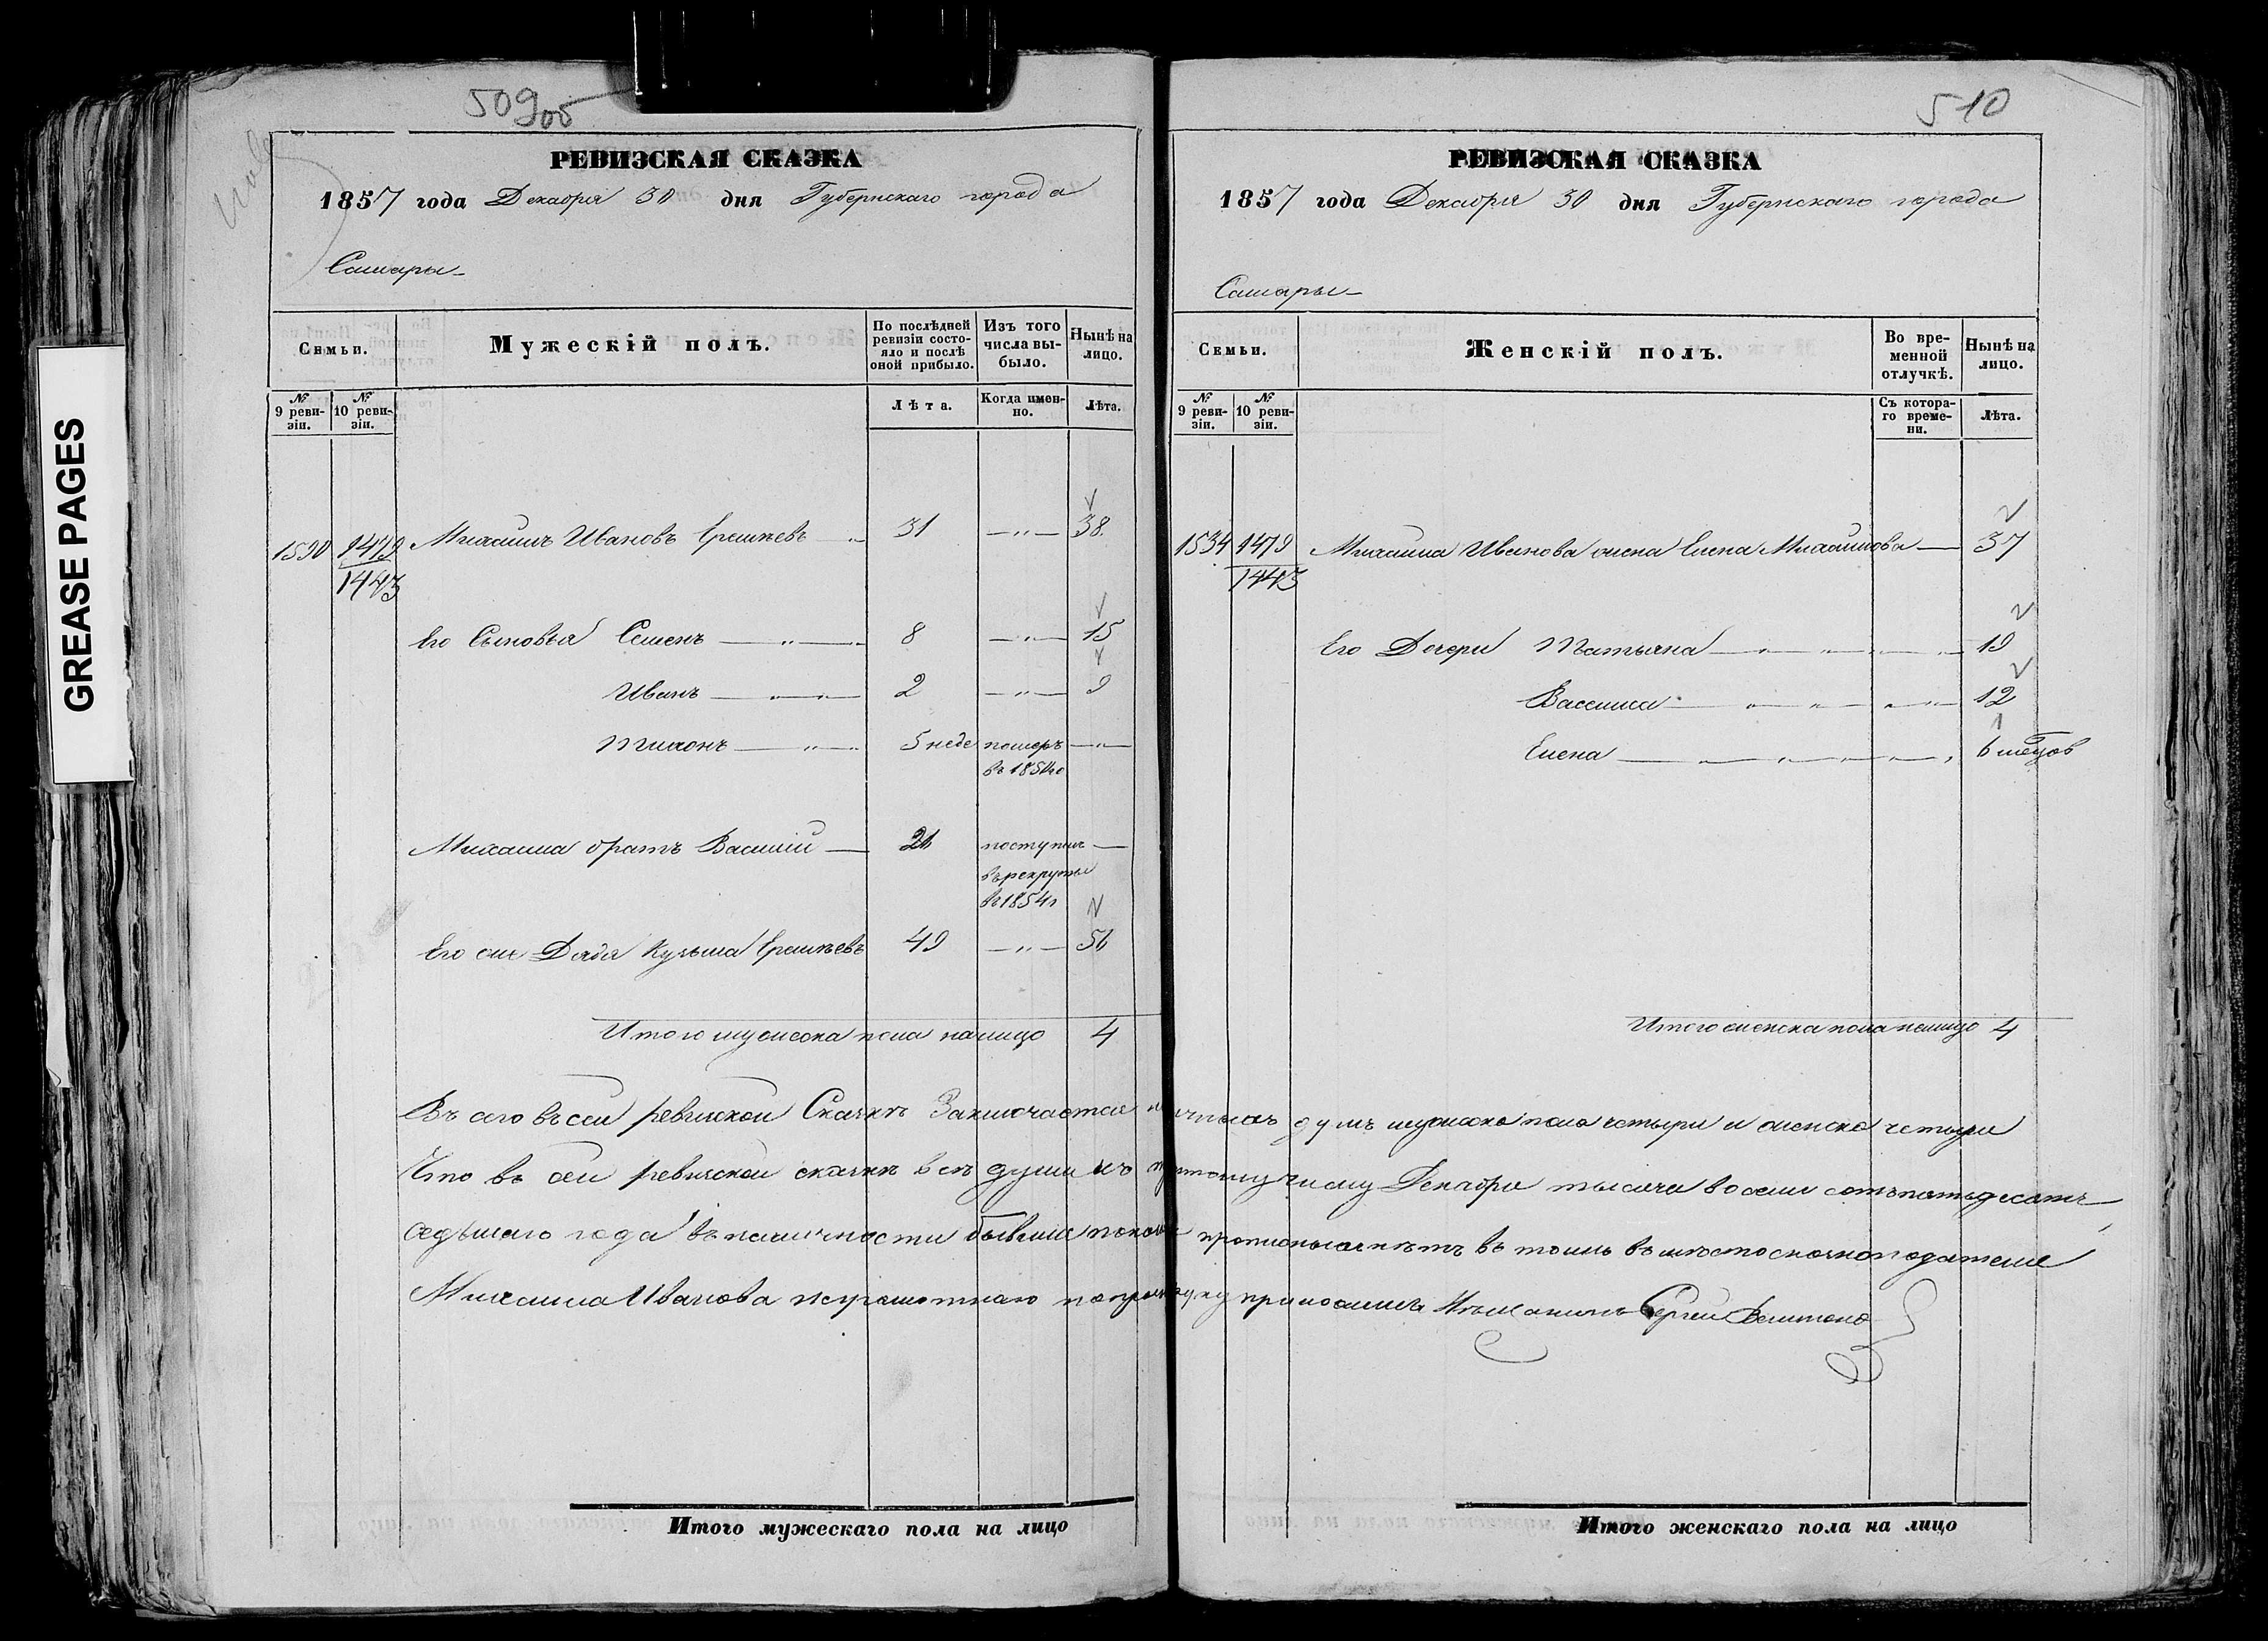 GREASE PAGES
509об
РЕВИЗСКАЯ СКАЗКА
1857 года Декабря 30 дня Губернскаго города
Самары
Семьи.
Мужескій полъ.
По послѣдней ревизіи состояло и послѣ оной прибыло.
Изъ того числа выбыло.
Нынѣ на лицо.
№ 9 ревизіи.
№ 10 ревизіи.
Лѣта.
Когда именно.
Лѣта.
1590 1479 Михаилъ Ивановъ 31 38
1443
Его Сыновья Семенъ 8 15
Иванъ 2 9
Тихонъ 5 неде померъ
въ 1854го
Михаила братъ Василій 21 поступилъ
въ рекруты
въ 1854г
Его же Дядя Кузьма 49 56
Итого мужеска пола налицо 4
510
РЕВИЗСКАЯ СКАЗКА
1857 года Декабря 30 дня Губернскаго города
Самары
Семьи.
Женскій полъ.
Во временной отлучкѣ.
Нынѣ на лицо.
№ 9 ревизіи.
№ 10 ревизіи.
Съ котораго времени.
Лѣта.
1534 1479 Михаила Иванова жена Елена Михайлова 37
1443
Его Дочери Татьяна 19
Васлиса 12
Елена 6 мѣцов
Итого женска пола налицо 4
Въ сей ревиской Скаскѣ Заключается душъ мужеска пола четыри и женска четыри
Что въ сей ревиской скаскѣ всѣ души къ числу Декабря тысяча восемь сотъ пятьдесятъ
седьмаго года въ наличности бывшия прописныхъ нѣтъ въ томъ въмѣсто скаскоподателя
Михаила Иванова неграмотнаго мѣщанинъ Сергей
Итого мужескаго пола на лицо
Итого женскаго пола на лицо